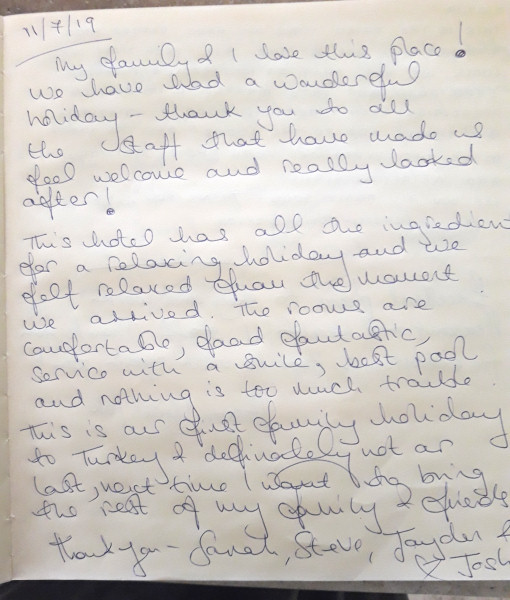 11/7/19
My family & I love this place!
We have had a wonderful
holiday - thank you to all
the staff that have made us
feel welcome and really looked
after!
This hotel has all the ingredien
for a relaxing holiday and we
felt relaxed from the moment
we arrived. The rooms are
comfortable, food fantastic,
service with a smile, best pool
and nothing is too much trouble.
This is our first family holiday
to Turkey & definately not our
last, next time I want to bring
the rest of my family & friends
Thank you - Sarah, Steve, Jayden &
Josh